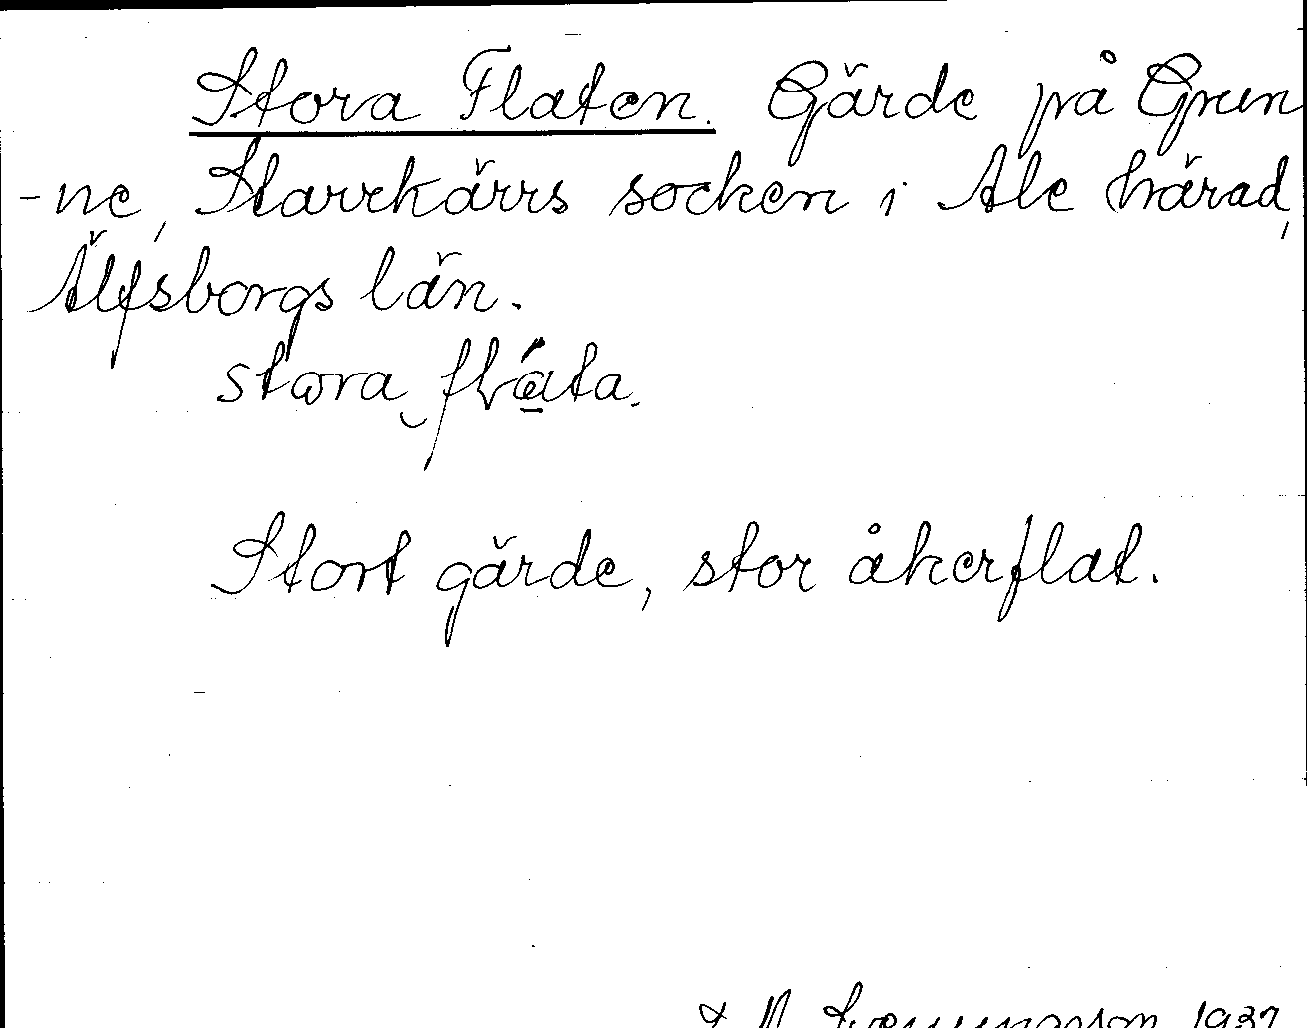 Stora Flaten. Gärde på Grun
-ne, Starrkärrs socken i Ale härad,
Älfsborgs län.
stora flata.
Stort gärde, stor åkerflat.
1937